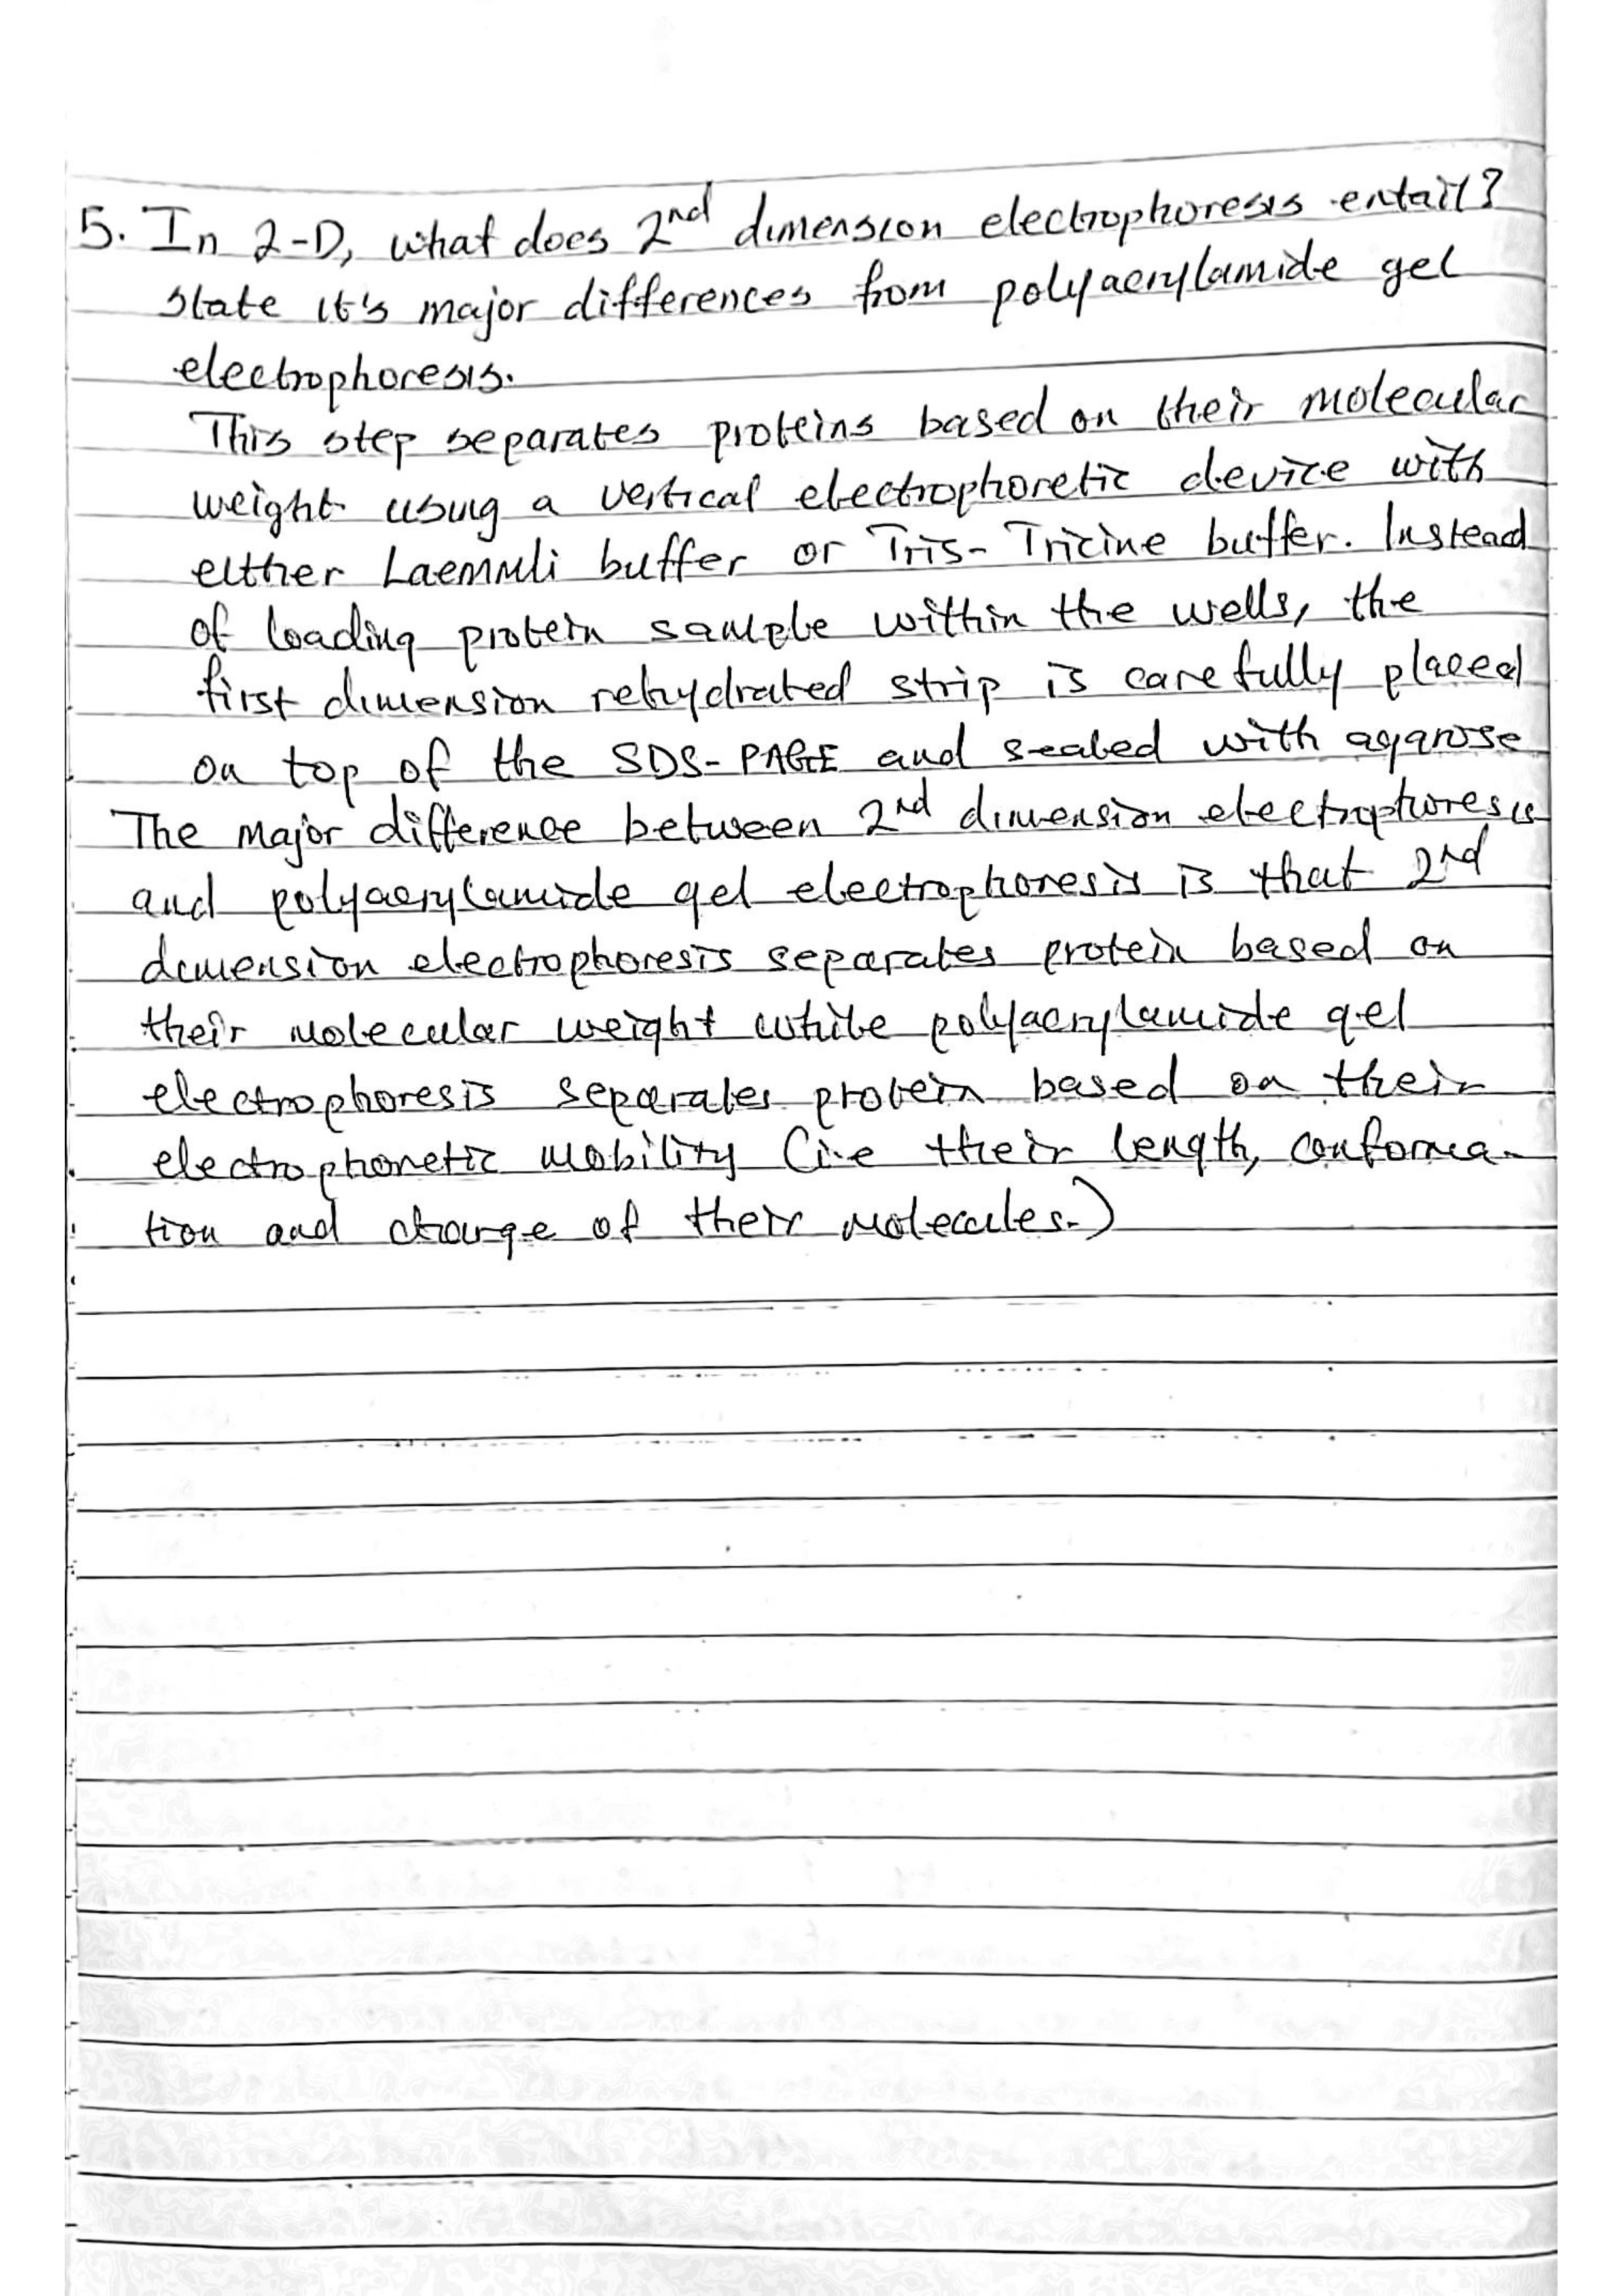 5. In 2-D, what does 2nd dimension electrophoresis entail?
State it's major differences from polyacrylamide gel
electrophoresis.
This step separates proteins based on their molecular
weight using a vertical electrophoretic device with
either Laemmli buffer or Tris-Tricine buffer. Instead
of loading protein sample within the wells, the
first dimension rehydrated strip is carefully placed
on top of the SDS-PAGE and sealed with agarose
The major difference between 2nd dimension electrophoresis
and polyacrylamide gel electrophoresis is that 2nd
dimension electrophoresis separates protein based on
their molecular weight while polyacrylamide gel
electrophoresis separates protein based on their
electrophoretic mobility (i.e their length, conforma-
tion and charge of their molecules.)